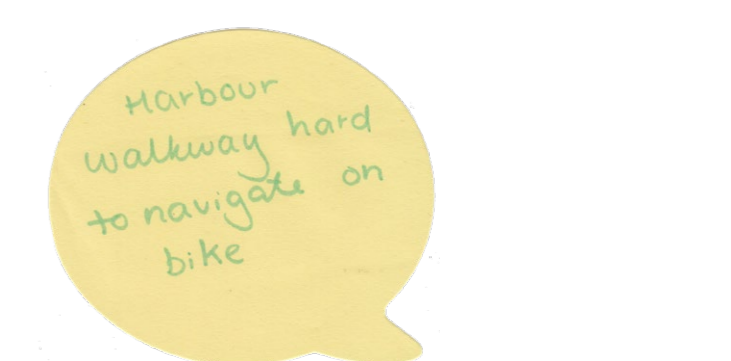 Harbour
walkway hard
to navigate on
bike